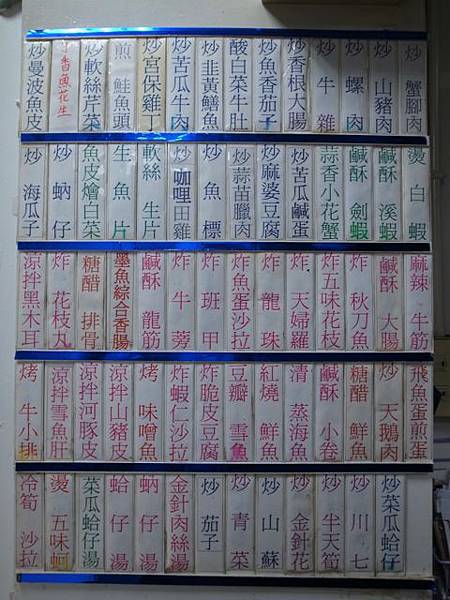 炒蟹腳肉
炒山豬肉
炒螺肉
炒牛雜
炒香根大腸
炒魚香茄子
酸白菜牛肚
炒韭黃鱔魚
炒苦瓜牛肉
炒宮保雞丁
煎鮭魚頭
炒軟絲芹菜
丁香魚花生
炒曼波魚皮
燙白蝦
鹹酥溪蝦
鹹酥劍蝦
蒜香小花蟹
炒苦瓜鹹蛋
炒麻婆豆腐
炒蒜苗臘肉
炒魚標
炒咖哩田雞
軟絲生片
生魚片
魚皮燴白菜
炒蚋仔
炒海瓜子
麻辣牛筋
鹹酥大腸
炸秋刀魚
炸五味花枝
炸天婦羅
炸龍珠
炸魚蛋沙拉
炸班甲
炸牛蒡
鹹酥龍筋
墨魚綜合香腸
糖醋排骨
炸花枝丸
涼拌黑木耳
飛魚蛋煎蛋
炒天鵝肉
糖醋鮮魚
鹹酥小卷
清蒸海魚
紅燒鮮魚
豆瓣雪魚
炸脆皮豆腐
炸蝦仁沙拉
烤味噌魚
涼拌山豬皮
涼拌河豚皮
涼拌雪魚肝
烤牛小排
炒菜瓜蛤仔
炒川七
炒半天筍
炒金針花
炒山蘇
炒青菜
炒茄子
金針肉絲湯
蚋仔湯
蛤仔湯
菜瓜蛤仔湯
燙五味蚵
冷筍沙拉